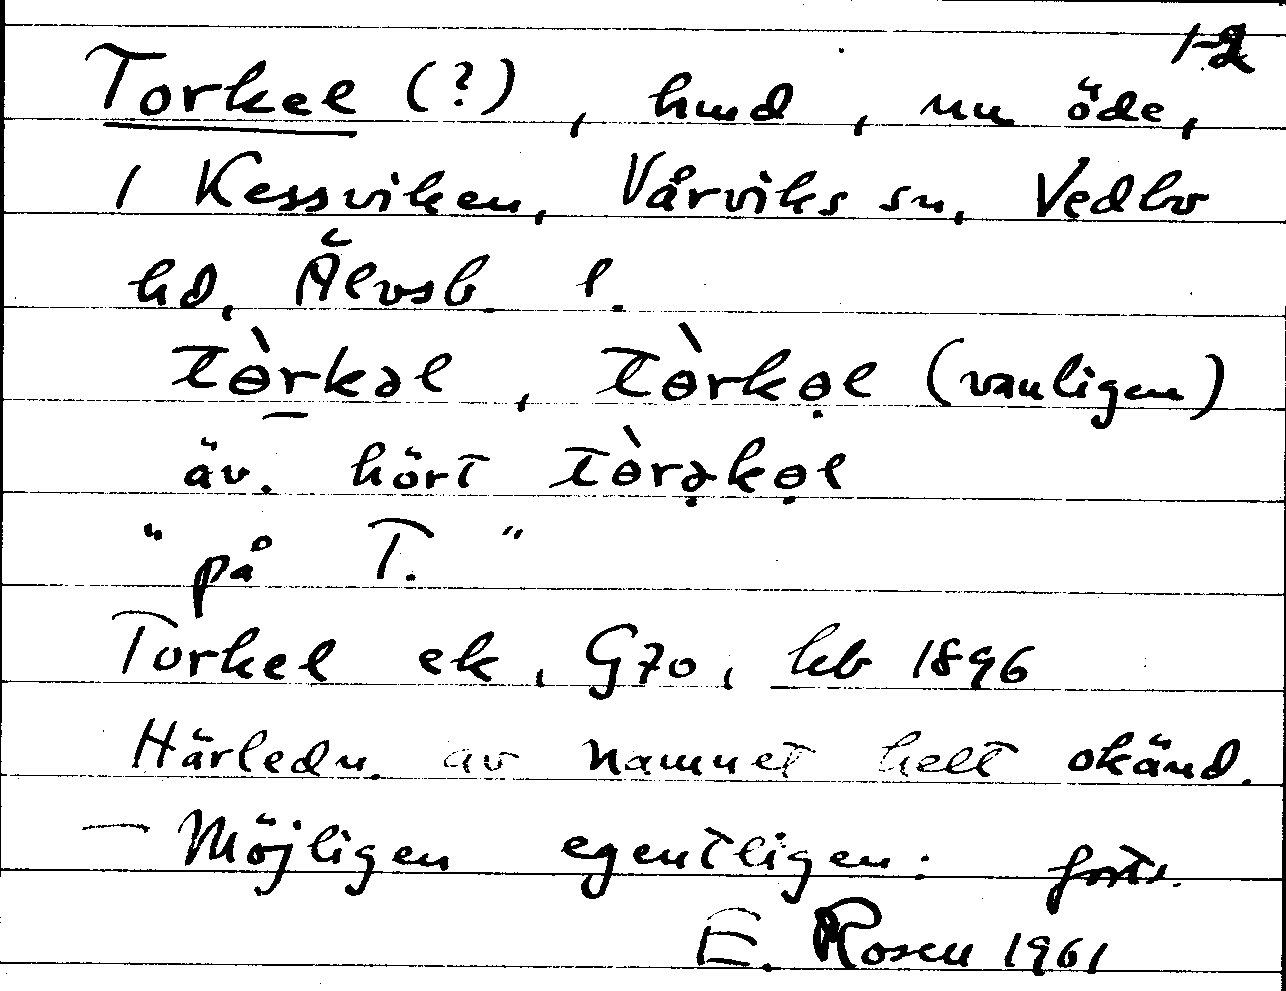 1-2
Torkel (?), hmd, nu öde,
i Kessviken, Vårviks sn, Vedbo
hd, Älvsb. l.
tɵ̀rkəl, tɵ̀rkɵ̣l (vanligen)
äv. hört tɵ̀rə̣kɵ̣l
"på T."
Torkel ek, G70, kb 1896
Härledn. av namnet helt okänd.
— Möjligen egentligen: forts.
E. Rosen 1961